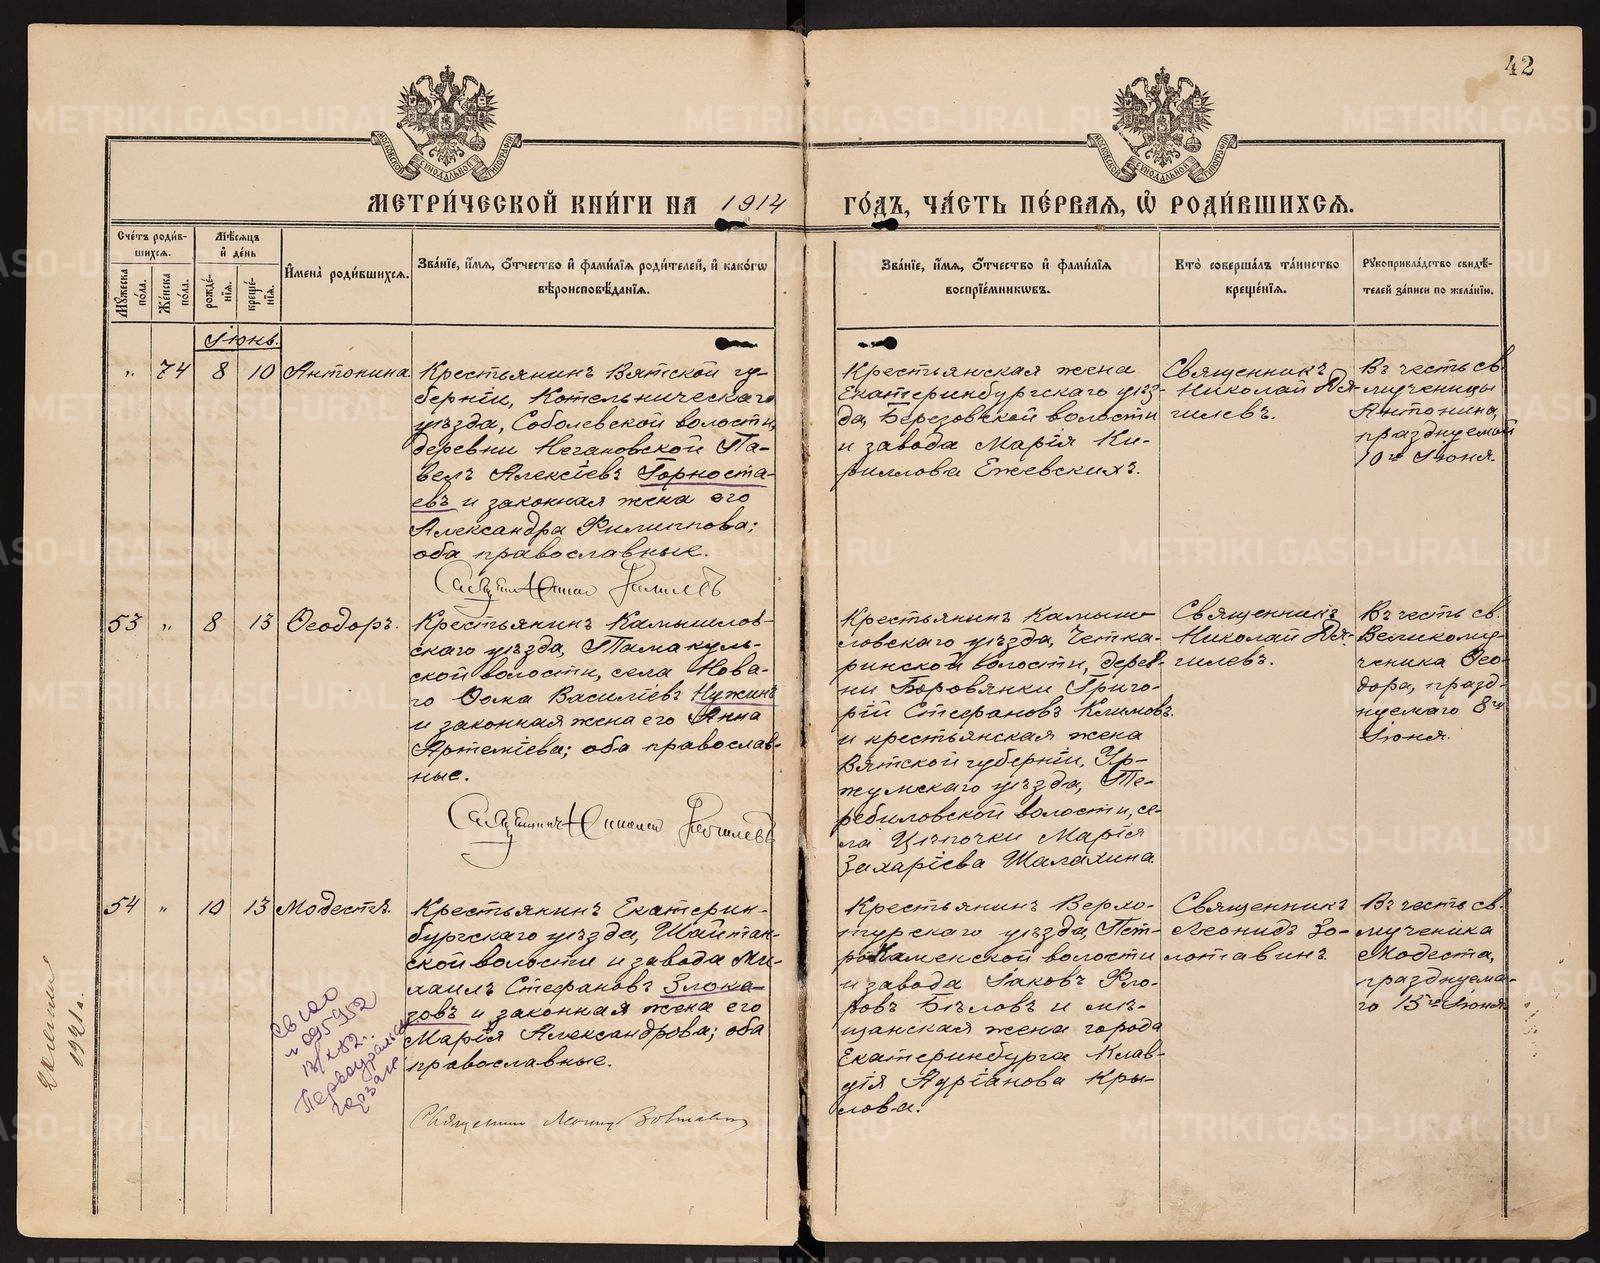 42
МЕТРИ́ЧЕСКОЙ КНИ́ГИ НА 1914 ГО́ДЪ, ЧА́СТЬ ПЕ́РВАЯ, Ѡ РОДИ́ВШИХСЯ.
Сче́тъ роди́в-
шихся.
Мѣ́сяцъ
и̂ де́нь
И̂мена̀ роди́вшихся.
Зва́нїе, и́мя, ѻ́тчество и̂ фами́лїя роди́телей, и̂ како́гѡ
вѣроисповѣ́данїя.
Мꙋ́жеска
по́ла.
Же́нска
по́ла.
рожде́-
нїя.
креще́-
нїя.
Зва́нїе, и́мя, ѻ́тчество и̂ фами́лїя
воспрїе́мникѡвъ.
Кто̀ соверша́лъ та́инство
креще́нїя.
Рꙋкоприкла́дство свидѣ́-
телей за́писи по жела́нїю.
Іюнь.
„ 74 8 10 Антонина.
Крестьянинъ Вятской гу-
берніи, Котельническаго
уѣзда, Соболевской волости,
деревни Негановской Па-
велъ Алексіевъ Горноста-
евъ и законная жена его
Александра Филиппова;
оба православные.
Крестьянская жена
Екатеринбургскаго уѣз-
да, Березовской волости
и завода Марія Ки-
риллова Ежевскихъ.
Священникъ
Николай Я-
гилевъ.
Въ честь св.
мученицы
Антонины,
празднуемой
10го Іюня.
53 „ 8 13 Ѳеодоръ.
Крестьянинъ Камышлов-
скаго уѣзда, Тамакуль-
ской волости, села Нова-
го Ѳома Василіевъ Нужинъ
и законная жена его Анна
Артеміева; оба православ-
ные.
Крестьянинъ Камыш-
ловскаго уѣзда, Четка-
ринской волости, дерев-
ни Боровянки Григо-
рій Стефановъ Климовъ
и крестьянская жена
Вятской губерніи, Ур-
жумскаго уѣзда, Те-
ребиловской волости, се-
ла Цѣпочки Марія
Захаріева Шалахина.
Священникъ
Николай
гилевъ.
Въ честь св.
Великому-
ченика Ѳео-
дора, празд-
нуемаго 8го
Іюня.
54 „ 10 13 Модестъ.
Крестьянинъ Екатерин-
бургскаго уѣзда, Шайтан-
ской волости и завода Ми-
хаилъ Стефановъ Злока-
зовъ и законная жена его
Марія Александрова; оба
православные.
Священникъ Леонидъ
Крестьянинъ Верхо-
турскаго уѣзда, Пет-
рокаменской волости
и завода Іаковъ Фло-
ровъ Бѣловъ и мѣ-
щанская жена города
Екатеринбурга Клав-
дія Адріанова Кры-
лова.
Священникъ
Леонидъ Зо-
лотавинъ
Въ честь св.
мученика
Модеста,
празднуема-
го 15го Іюня
1921 г.